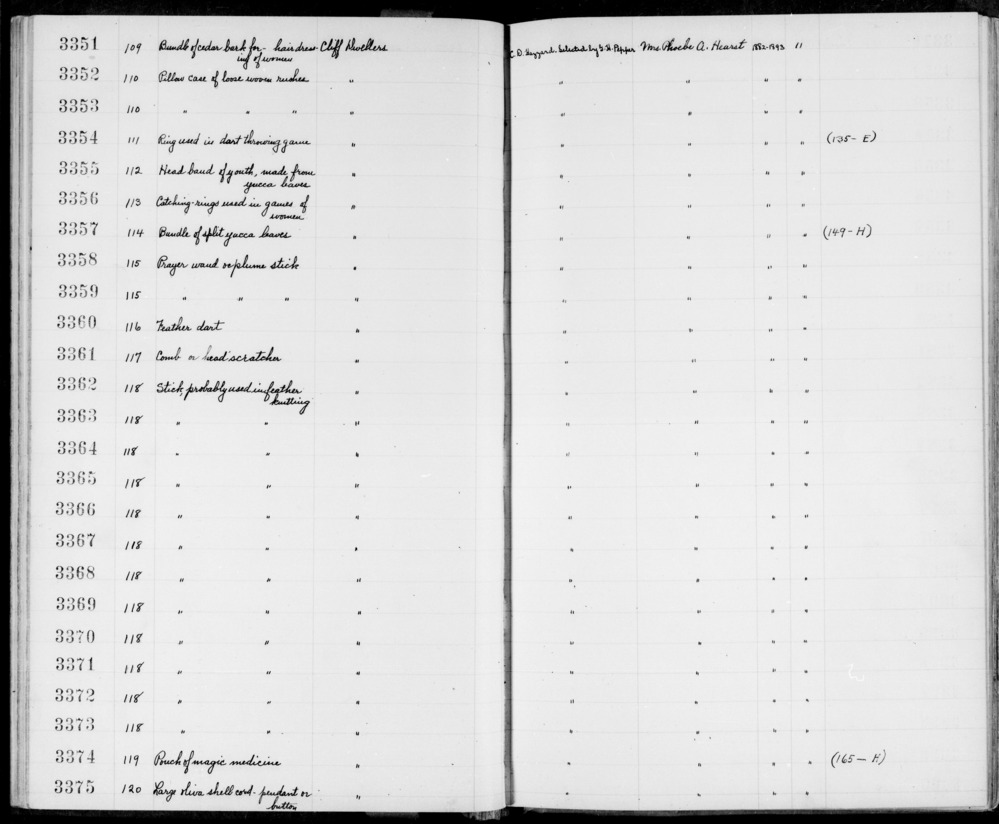 3351 109 Bundle of cedar bark for - hairdress- Cliff Dwellers C. D. Hazzard. Selected by G. H. Pepper Mrs. Phoebe A. Hearst 1892-1893 11
ing of women
3352 110 Pillow case of loose woven rushes " " " " "
3353 110 " " " " " " " "
3354 111 Ring used in dart throwing game " " " " " (135- E)
3355 112 Head band of youth, made from " " " " "
yucca leaves
3356 113 Catching-rings used in games of " " " " "
women
3357 114 Bundle of split yucca leaves " " " " " (149-H)
3358 115 Prayer wand or plume stick " " " " "
3359 115 " " " " " " " "
3360 116 Feather dart " " " " "
3361 117 Comb or head scratcher " " " " "
3362 118 Stick, probably used in feather " " " " "
knitting
3363 118 " " " " " " "
3364 118 " " " " " " "
3365 118 " " " " " " "
3366 118 " " " " " " "
3367 118 " " " " " " "
3368 118 " " " " " " "
3369 118 " " " " " " "
3370 118 " " " " " " "
3371 118 " " " " " " "
3372 118 " " " " " " "
3373 118 " " " " " " "
3374 119 Pouch of magic medicine " " " " " (165- H)
3375 120 Large oliva shell cord- pendant or " " " " "
button